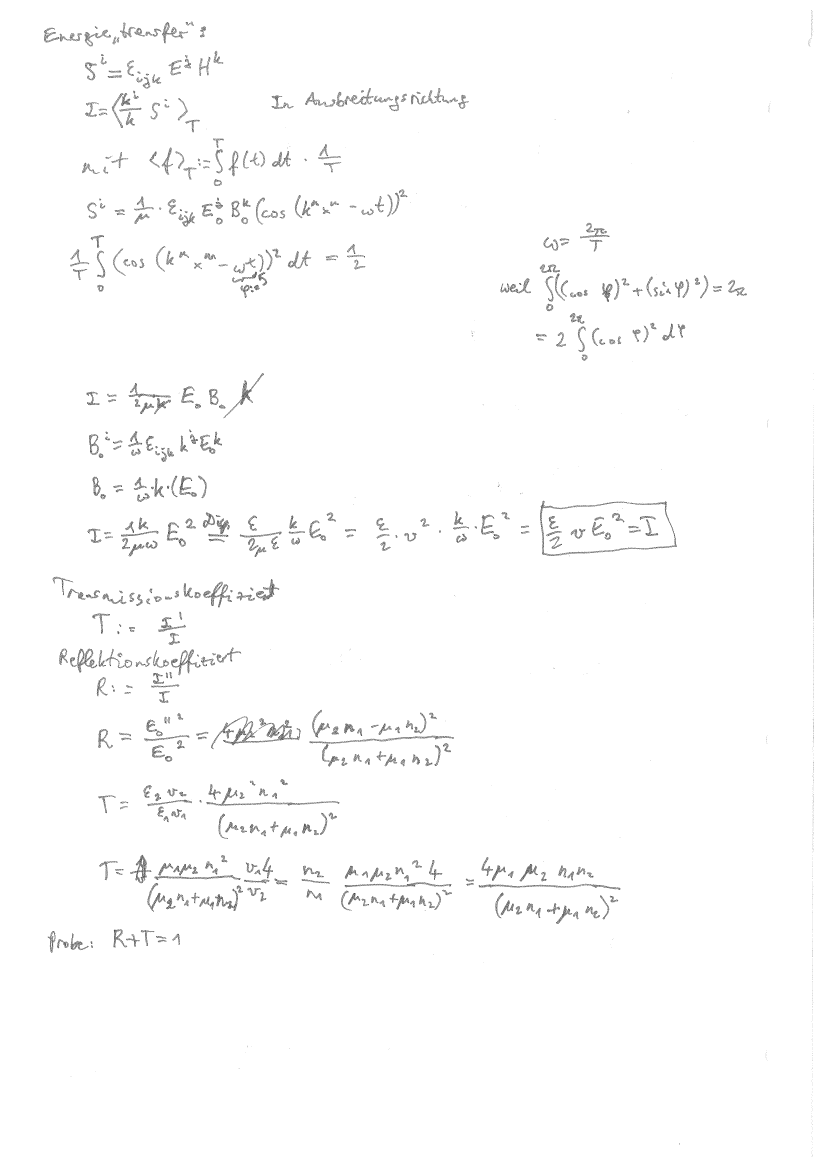 Energie„transfer":
Sⁱ = ε_ijk E^j H^k
I = ⟨kⁱ/k Sⁱ⟩_T In Ausbreitungsrichtung
mit ⟨f⟩_T := ∫_0^T f(t) dt · 1/T
Sⁱ = 1/μ · ε_ijk E_0^j B_0^k (cos (k^m x^m - ωt))²
1/T ∫_0^T (cos (k^m x^m - ωt))² dt = 1/2
ω = 2π/T
weil ∫_0^2π ((cos φ)² + (sin φ)²) = 2π
= 2 ∫_0^2π (cos φ)² dφ
I = 1/2μk E_0 B_0 k
B_0^i = 1/ω ε_ijk k^j E_0^k
B_0 = 1/ω · k · (E_0)
I = 1k/2μω E_0² = ε/2με k/ω E_0² = ε/2 · v² · k/ω · E_0² = ε/2 v E_0² = I
Transmissionskoeffizient
T := I'/I
Reflektionskoeffizient
R := I''/I
R = E_0''²/E_0² = (μ₂n₁ - μ₁n₂)²/(μ₂n₁ + μ₁n₂)²
T = ε₂v₂/ε₁v₁ · 4μ₂²n₁²/(μ₂n₁ + μ₁n₂)²
T = μ₁μ₂n₁²/(μ₂n₁ + μ₁n₂)² v₁4/v₂ = n₂/n₁ μ₁μ₂n₁²4/(μ₂n₁ + μ₁n₂)² = 4μ₁μ₂n₁n₂/(μ₂n₁ + μ₁n₂)²
Probe: R+T=1